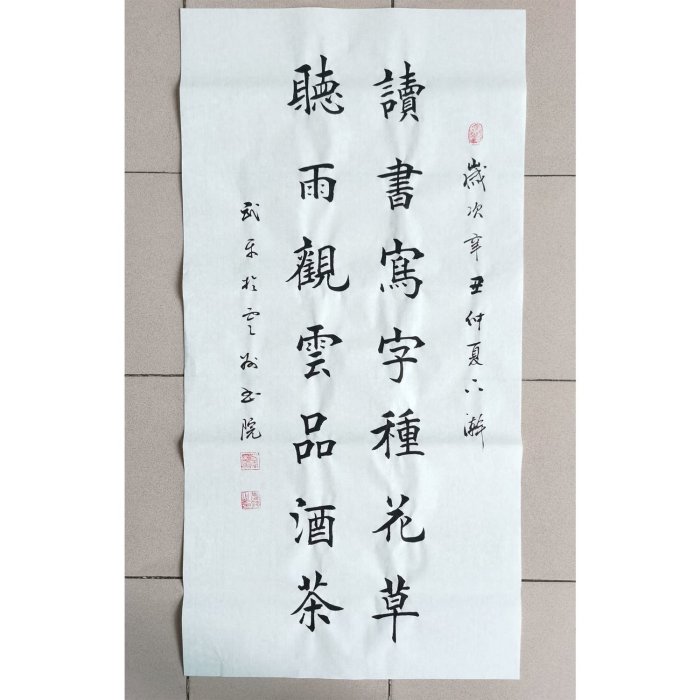 歲次辛丑仲夏下澣
讀書寫字種花草
聽雨觀雲品酒茶
武平於雲
書院